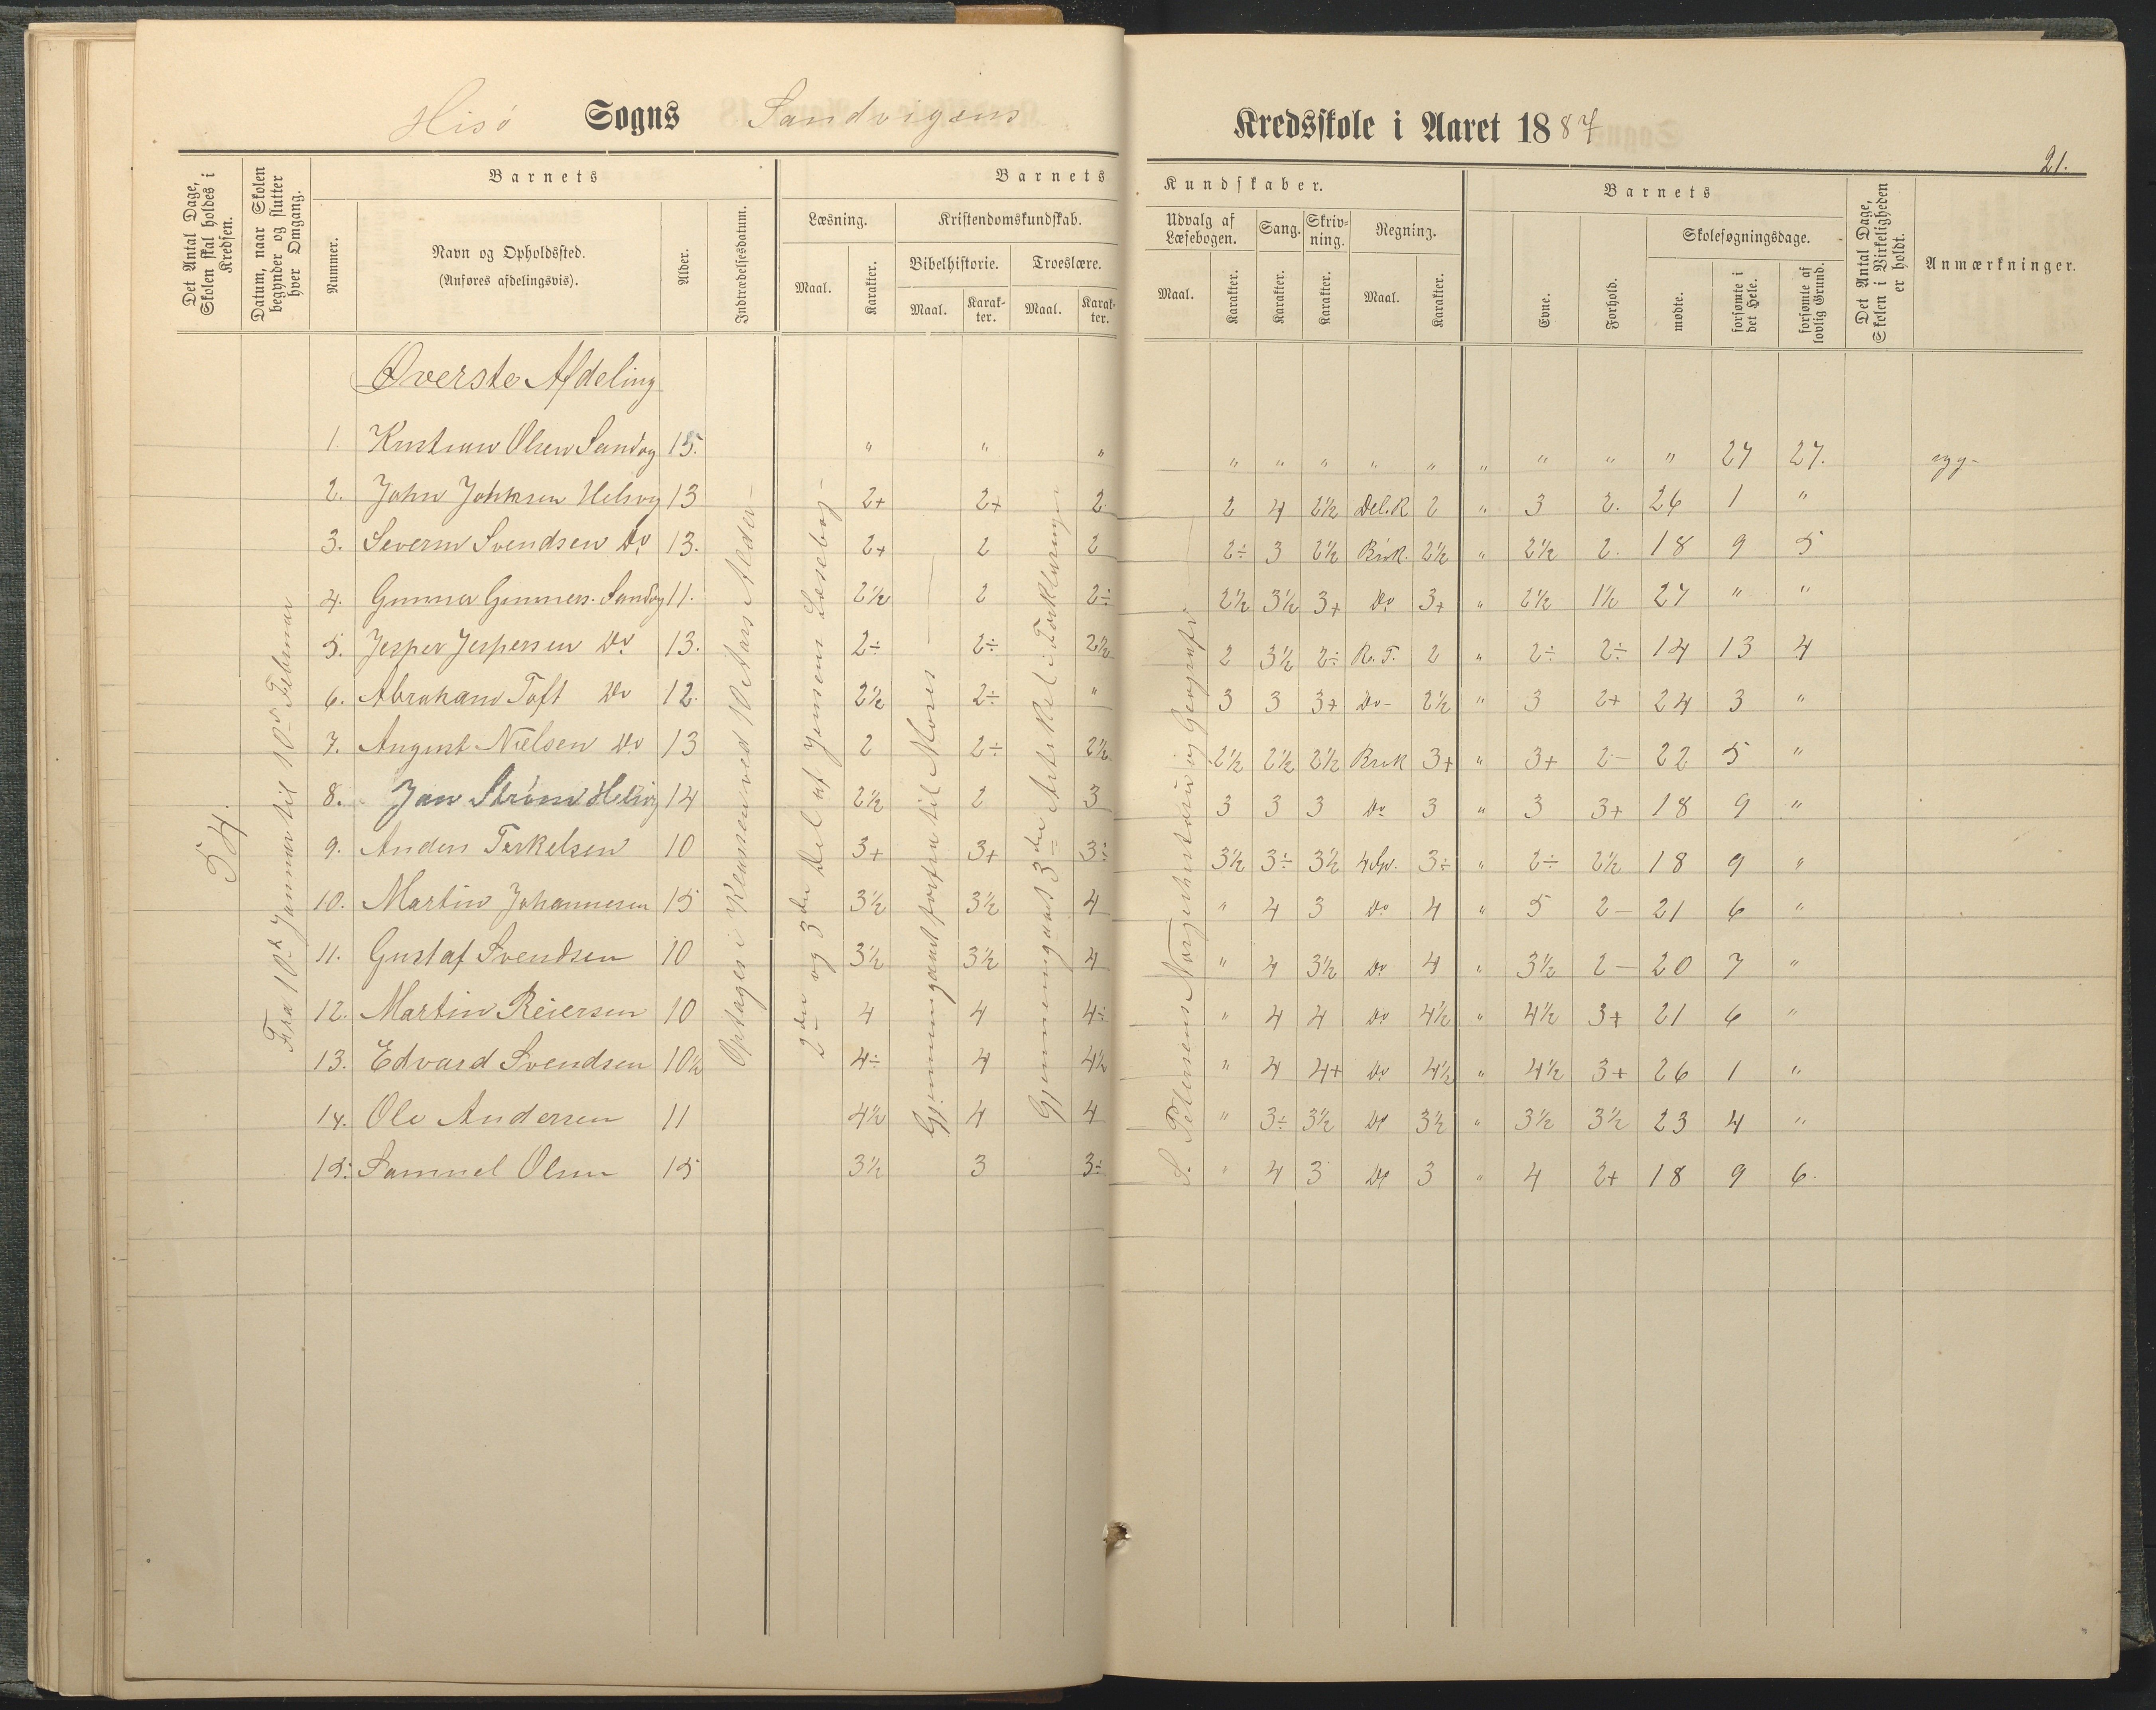 Hisø Sogns Sandvigens Kredsskole i Aaret 1887
21.
Det Antal Dage, Skolen skal holdes i Kredsen.
Datum, naar Skolen begynder og slutter hver Omgang.
Barnets
Nummer.
Navn og Opholdssted.
(Anføres afdelingsvis).
Alder.
Indtrædelsesdatum.
Barnets Kundskaber.
Læsning.
Maal.
Karakter.
Kristendomskundskab.
Bibelhistorie.
Maal.
Karakter.
Troeslære.
Maal.
Karakter.
Udvalg af Læsebogen.
Maal.
Karakter.
Sang.
Karakter.
Skrivning.
Karakter.
Regning.
Maal.
Karakter.
Barnets
Evne.
Forhold.
Skolesøgningsdage.
mødte.
forsømte i det Hele.
forsømte af lovlig Grund.
Det Antal Dage, Skolen i Virkeligheden er holdt.
Anmærkninger.
54.
Fra 10d Januar til 10d Februar
Optages i Klassen ved 10 Aars Alder –
2den og 3den Del af Jensens Læsebog –
Gjennemgaaet forfra til Moses
Gjennemgaaet 3die Artikel i Forklaringen
S. Petersens Norgeshistorie og Geografi.
Øverste Afdeling
1. Kristian Olsen Sandvg 15. " " " " " " " " " " " " 27 27. syg-
2. John Johnsen Helsvg 13 2+ 2+ 2 2 4 2½ Del.R 2 " 3 2. 26 1 "
3. Severin Svendsen Do 13. 2+ 2 2 2÷ 3 2½ Brøk. 2½ " 2½ 2. 18 9 5
4. Gunner Gunners. Sandvg 11. 2½ 2 2÷ 2½ 3½ 3+ Do 3+ " 2½ 1½ 27 " "
5. Jesper Jespersen Do 13. 2÷ 2÷ 2½ 2 3½ 2÷ R. T. 2 " 2÷ 2÷ 14 13 4
6. Abraham Toft Do 12. 2½ 2÷ " 3 3 3+ Do- 2½ " 3 2+ 24 3 "
7. August Nielsen Do 13 2 2÷ 2½ 2½ 2½ 2½ Brøk 3+ " 3+ 2- 22 5 "
8. Jan Strøm Helsvg 14 2½ 2 3 3 3 3 Do 3 " 3 3+ 18 9 "
9. Anders Terkelsen 10 3+ 3+ 3÷ 3½ 3÷ 3½ 4 Sp. 3÷ " 2÷ 2½ 18 9 "
10. Martin Johannesen 15 3½ 3½ 4 " 4 3 Do 4 " 5 2- 21 6 "
11. Gustaf Svendsen 10 3½ 3½ 4 " 4 3½ Do 4 " 3½ 2- 20 7 "
12. Martin Reiersen 10 4 4 4÷ " 4 4 Do 4½ " 4½ 3+ 21 6 "
13. Edvard Svendsen 10½ 4÷ 4 4½ " 4 4+ Do 4½ " 4½ 3+ 26 1 "
14. Ole Andersen 11 4½ 4 4 " 3÷ 3½ Do 3½ " 3½ 3½ 23 4 "
15. Samuel Olsen 15 3½ 3 3÷ " 4 3 Do 3 " 4 2+ 18 9 6.